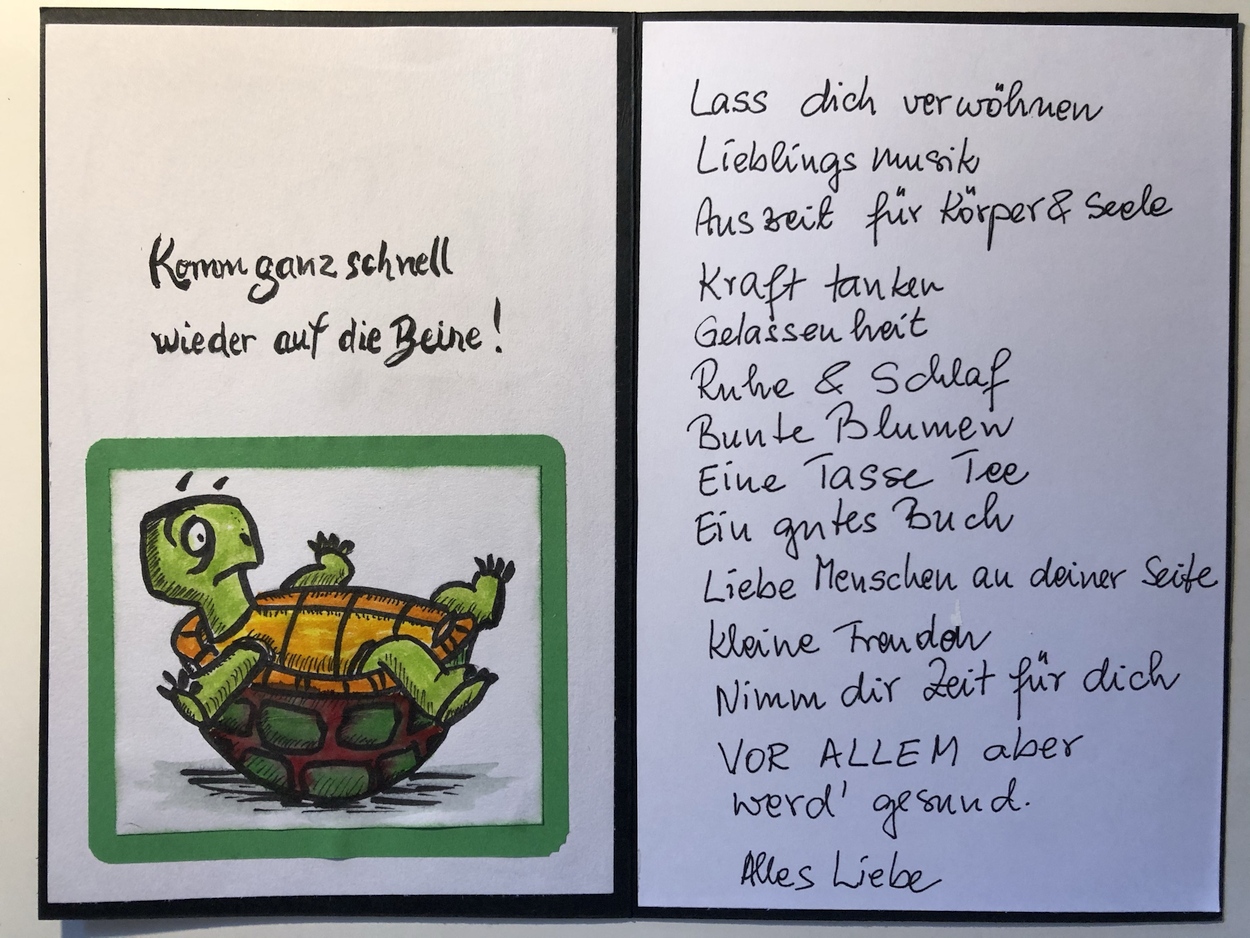 Komm ganz schnell
wieder auf die Beine!
Lass dich verwöhnen
Lieblingsmusik
Auszeit für Körper & Seele
Kraft tanken
Gelassenheit
Ruhe & Schlaf
Bunte Blumen
Eine Tasse Tee
Ein gutes Buch
Liebe Menschen an deiner Seite
kleine Freuden
Nimm dir Zeit für dich
VOR ALLEM aber
werd' gesund.
Alles Liebe